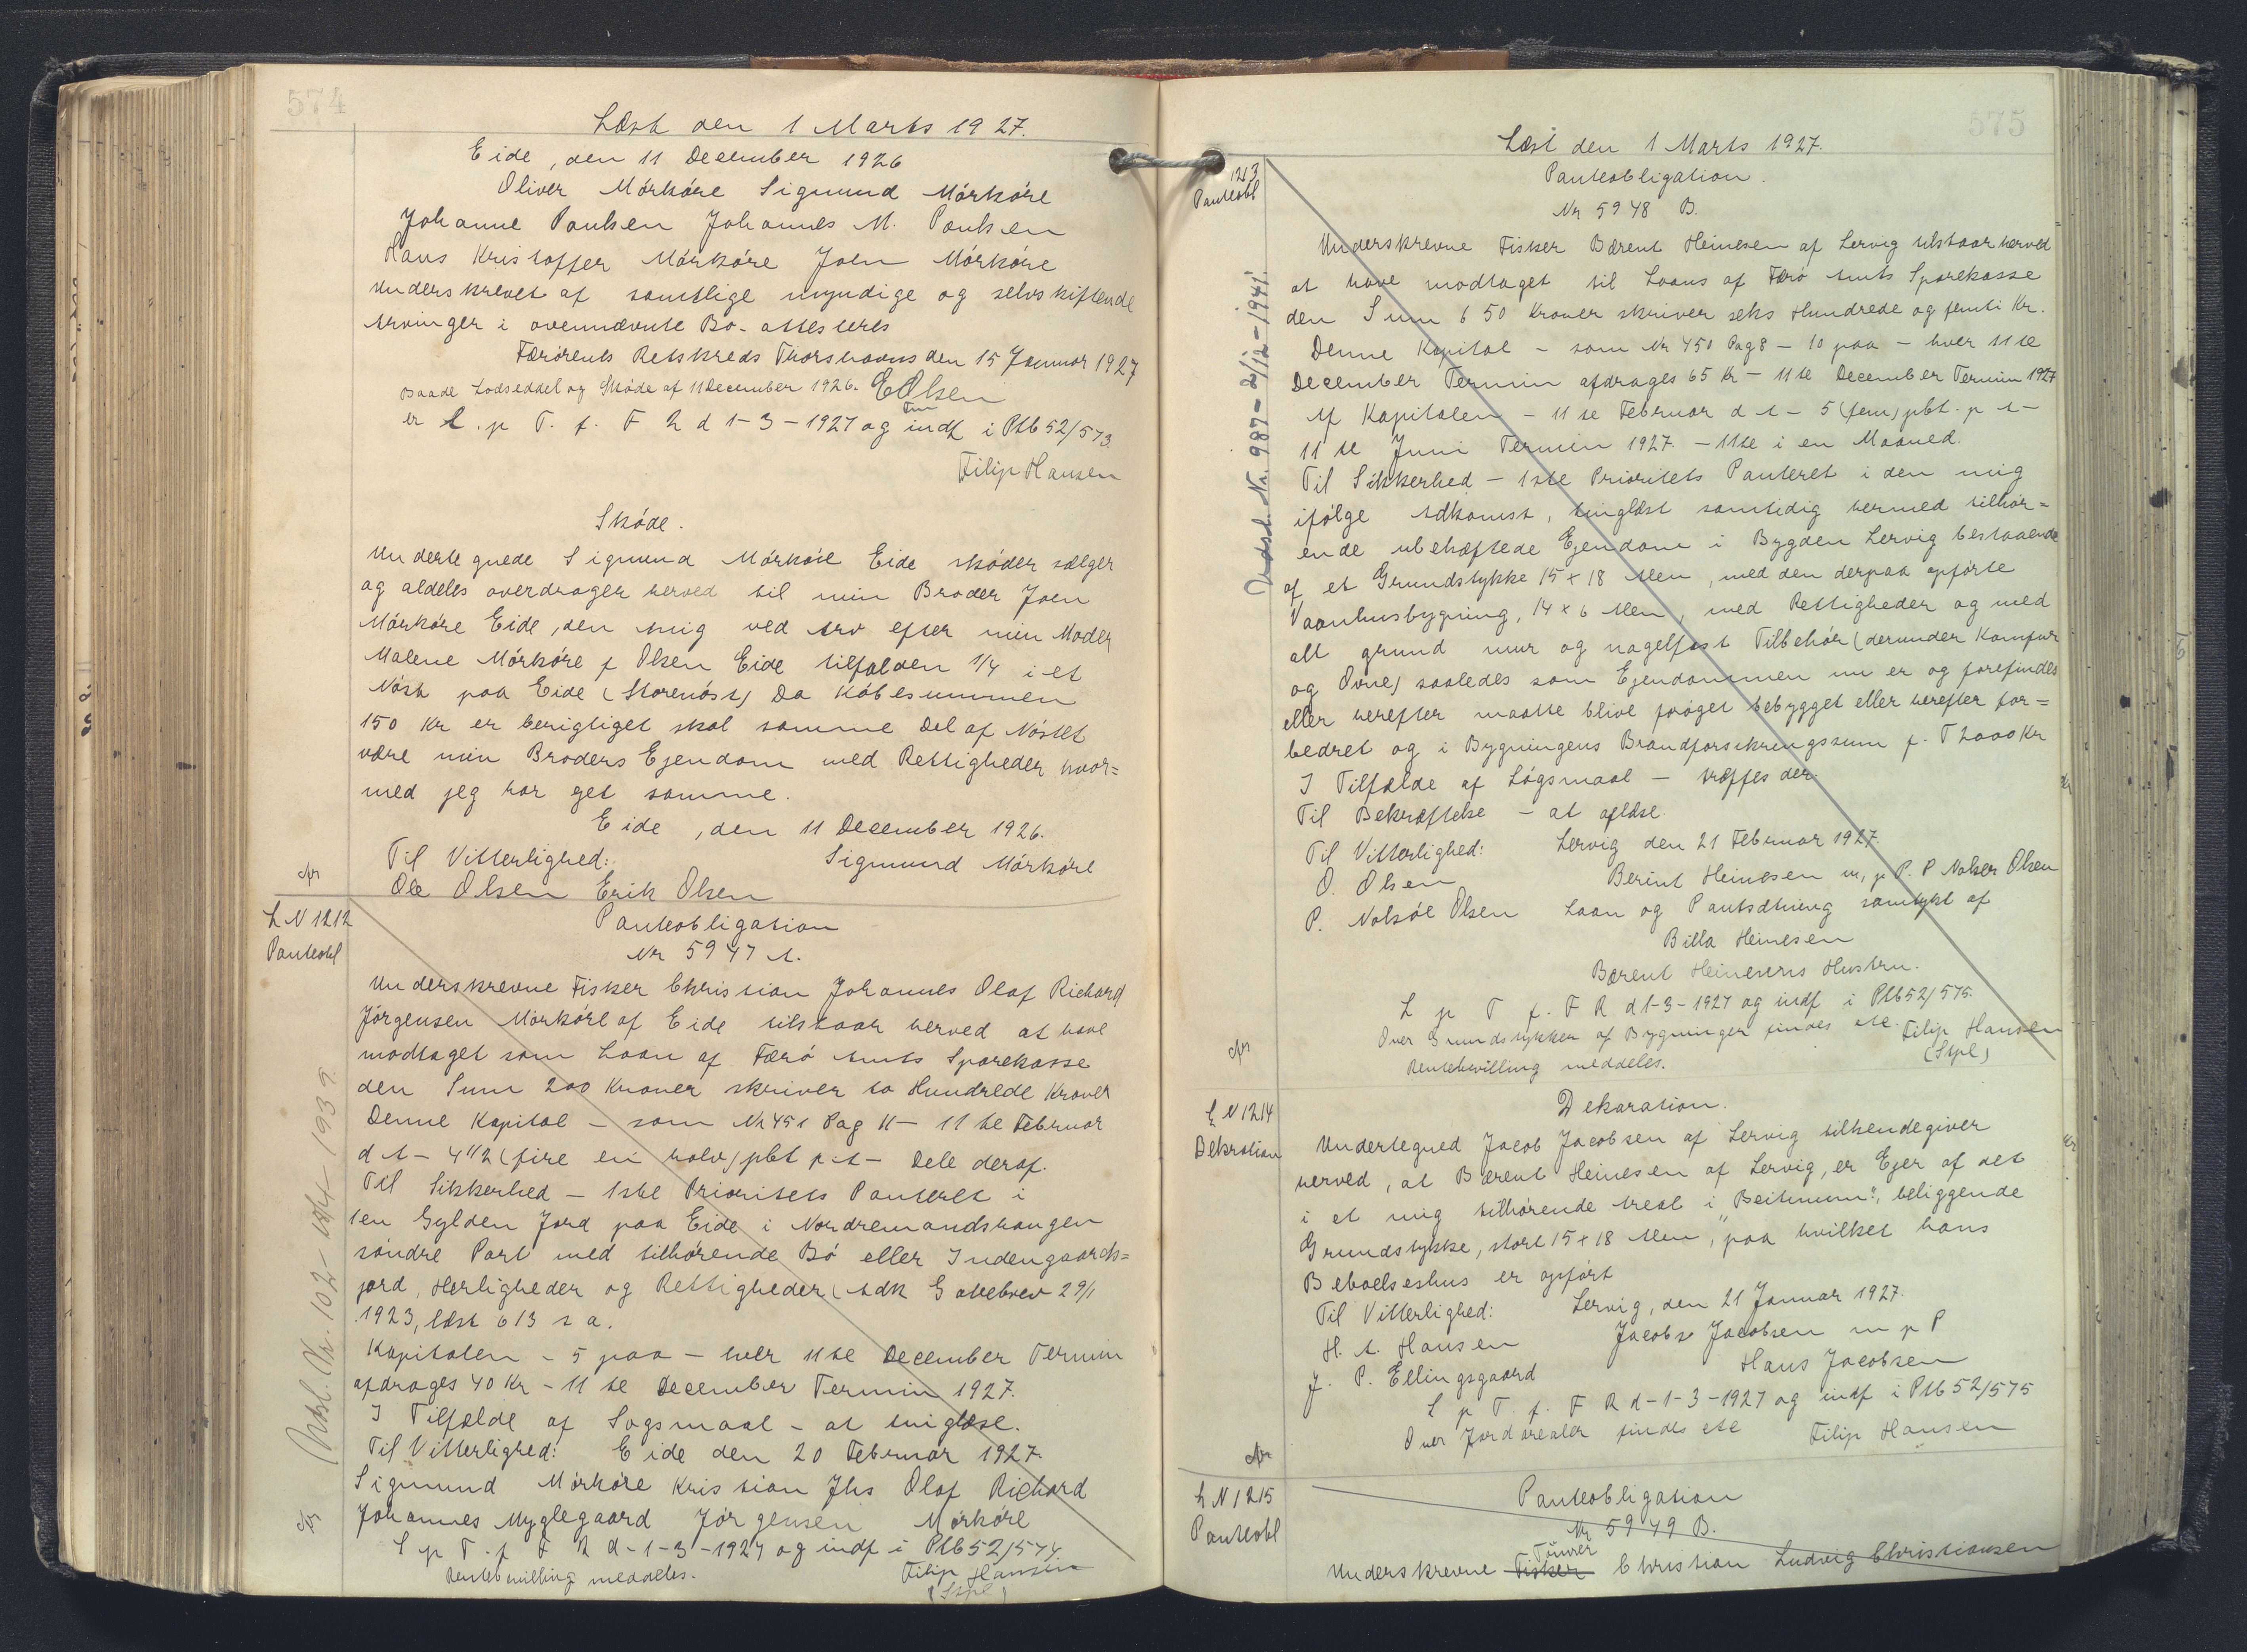 574
Læst den 1 Marts 1927.
Eide, den 11 December 1926
Oliver Mörköre Sigmund Mörköre
Johanne Poulsen Johannes M. Poulsen
Hans Kristoffer Mörköre Joen Mörköre
Underskrevet af samtlige myndige og selvskiftende
Arvinger i ovennævnte Bo - attesteres
Færöernes Retskreds Thorshavns den 15 Januar 1927
Baade Lodseddel og Sköde af 11 December 1926. E Olsen
Fm
er L. p T. f. F R d 1-3-1927 og indf i Ptb 52/573
Filip Hansen
Sköde.
Undertegnede Sigmund Mörköre Eide sköder sælger
og aldeles overdrager herved til min Broder Joen
Mörköre Eide, den mig ved Arv efter min Moder
Malene Mörköre f Olsen Eide tilfalden 1/4 i et
Nöst paa Eide (Storenöst) Da Köbesummen
150 Kr er berigtiget skal samme Del af Nöstet
være min Broders Ejendom med Rettigheder hvor=
med jeg har get samme.
Eide, den 11 December 1926.
Til Vitterlighed: Sigmund Mörköre
Ole Olsen Erik Olsen
L N 1212
Panteobl
Panteobligation
Nr 5947 A.
Underskrevne Fisker Christian Johannes Olaf Richard
Jörgensen Mörköre af Eide tilstaar herved at have
modtaget som Laan af Færö Amts Sparekasse
den Sum 200 Kroner skriver to Hundrede Kroner
Denne Kapital - som Nr 451 Pag 11 - 11 te Februar
d A - 4 1/2 (fire en halv) pbt p A - Dele deraf.
Til Sikkerhed - 1ste Prioritets Panteret i
1 en Gylden Jord paa Eide i Nordremandshaugen
söndre Part med tilhörende Bö eller Indengaards=
jord, Herligheder og Rettigheder (Adk Gavebrev 29/1
1923, læst 6/3 s a.
Kapitalen - 5 paa - hver 11 te December Termin
afdrages 40 Kr - 11 te December Termin 1927.
I Tilfælde af Sagsmaal - at tinglæse.
Til Vitterlighed: Eide den 20 Februar 1927.
Sigmund Mörköre Kristian Jhs Olaf Richard
Johannes Myglegaard Jörgensen Mörköre
L p T. f F R d - 1-3-1927 og indf i Ptb 52/574
Rentebevilling meddeles. Filip Hansen
(Stpl)
575
Læst den 1 Marts 1927.
1213
Panteobl
Udsl. Nr. 987 - 2/12 - 1941.
Panteobligation.
Nr 5948 B.
Underskrevne Fisker Bærent Heinesen af Lervig tilstaar herved
at have modtaget til Laans af Færö Amts Sparekasse
den Sum 650 Kroner skriver seks Hundrede og femti Kr.
Denne Kapital - som Nr 450 Pag 8 - 10 paa - hver 11 te
December Termin afdrages 65 Kr - 11 te December Termin 1927
Af Kapitalen - 11 te Februar d A - 5 (fem) pbt. p A -
11 te Juni Termin 1927. - 11te i en Maaned.
Til Sikkerhed - 1ste Prioritets Panteret i den mig
ifölge Adkomst, tinglæst samtidig hermed tilhör=
ende ubehæftede Ejendom i Bygden Lervig bestaaende
af et Grundstykke 15 x 18 Alen, med den derpaa opförte
Vaanhusbygning, 14 x 6 Alen, med Rettigheder og med
alt grund mur og nagelfast Tilbehör (derunder Komfur
og Ovne) saaledes som Ejendommen nu er og forefindes
eller herefter maatte blive foröget bebygget eller herefter for=
bedret og i Bygningens Brandforsikringssum f. T 2000 Kr
I Tilfælde af Lögsmaal - træffes der.
Til Bekræftelse - at aflæse.
Til Vitterlighed: Lervig den 21 Februar 1927.
O. Olsen Berint Heinesen m. p. P. P Nolsøe Olsen
P. Nolsöe Olsen Laan og Pantsætning samtykt af
Billa Heinesen
Bærent Heinesens Hustru.
L p T f. F R d 1-3-1927 og indf i Ptb 52/575.
Over Grundstykker af Bygninger findes etc. Filip Hansen
Rentebevilling meddeles. (Stpl)
L N 1214
Dekration
Dekaration.
Undertegned Jacob Jacobsen af Lervig tilkendegiver
herved, at Bærent Heinesen af Lervig, er Ejer af det
i et mig tilhörende Areal i "Beitinum", beliggende
Grundstykke, stort 15 x 18 Alen, paa hvilket hans
Beboelseshus er opfört
Til Vitterlighed: Lervig, den 21 Januar 1927.
H. A. Hansen Jacob Jacobsen m p P
J. P. Ellingsgaard Hans Jacobsen
L p T. f. F R d - 1-3-1927 og indf i Ptb 52/575
Over Jordarealer findes etc Filip Hansen
L N 1215
Panteobl
Panteobligation
Nr 5949 B.
Tömrer
Underskrevne Fisker Christian Ludvig Christiansen